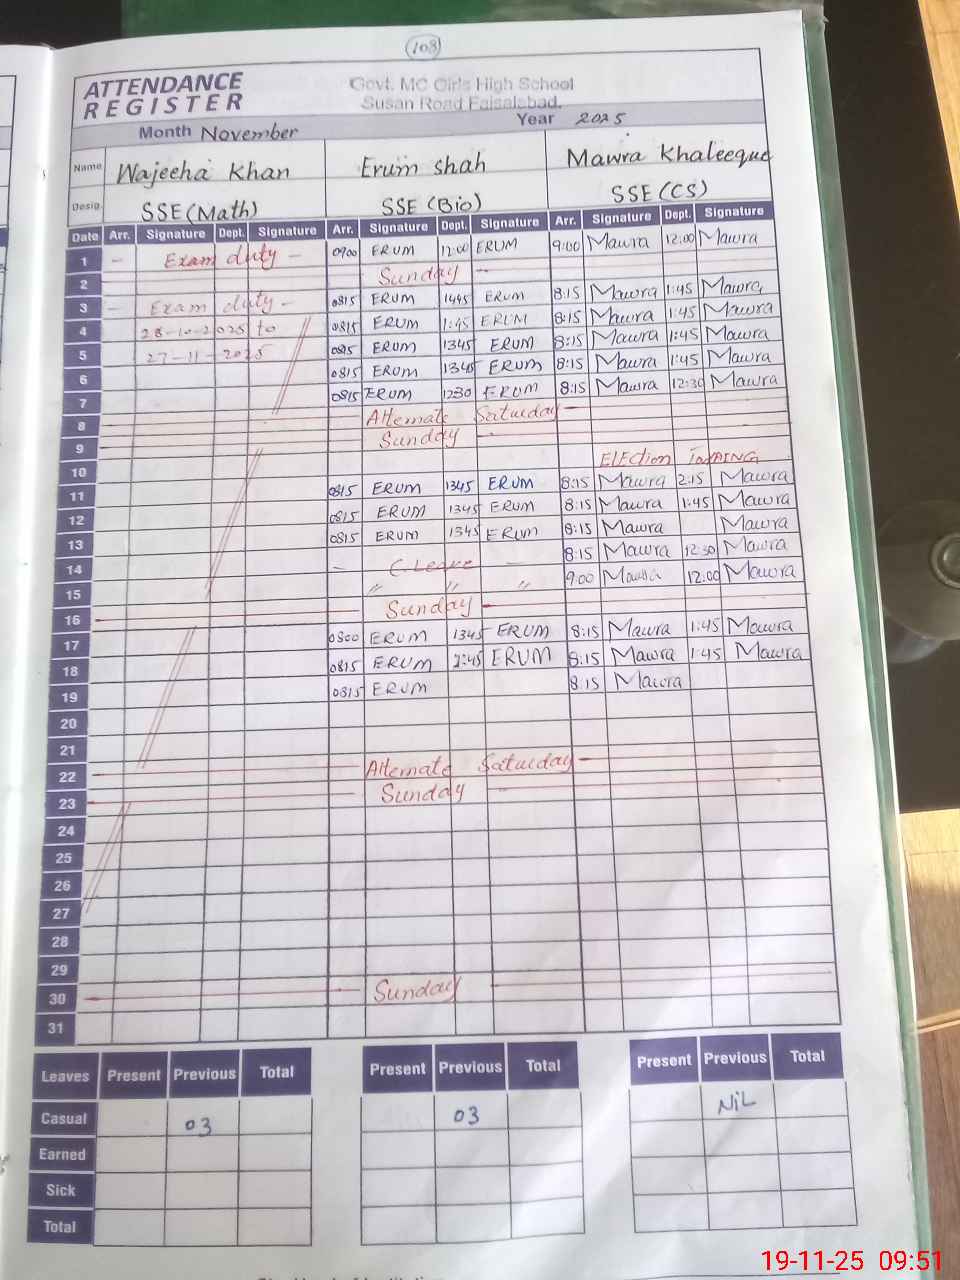 108
ATTENDANCE
REGISTER
Govt. MC Girls High School
Susan Road Faisalabad.
Month November Year 2025
Name Wajeeha Khan Erum shah Mawra Khaleeque
Desig. SSE (Math) SSE (Bio) SSE (CS)
Date Arr. Signature Dept. Signature Arr. Signature Dept. Signature Arr. Signature Dept. Signature
1 - Exam duty - 0900 ERUM 12:00 ERUM 9:00 Mawra 12:00 Mawra
2 Sunday
3 - Exam duty - 0815 ERUM 1445 ERUM 8:15 Mawra 1:45 Mawra
4 28-10-2025 to 0815 ERUM 1:45 ERUM 8:15 Mawra 1:45 Mawra
5 27-11-2025 0815 ERUM 1345 ERUM 8:15 Mawra 1:45 Mawra
6 0815 ERUM 1345 ERUM 8:15 Mawra 1:45 Mawra
7 0815 ERUM 1230 ERUM 8:15 Mawra 12:30 Mawra
8 Alternate Saturday
9 Sunday
10 ElEction
11 0815 ERUM 1345 ERUM 8:15 Mawra 2:15 Mawra
12 0815 ERUM 1345 ERUM 8:15 Mawra 1:45 Mawra
13 0815 ERUM 1345 ERUM 8:15 Mawra Mawra
14 - C-Leave - 8:15 Mawra 12:30 Mawra
15 " " " 9:00 Mawra 12:00 Mawra
16 Sunday
17 0800 ERUM 1345 ERUM 8:15 Mawra 1:45 Mawra
18 0815 ERUM 1:45 ERUM 8:15 Mawra 1:45 Mawra
19 0815 ERUM 8:15 Mawra
20
21
22 Alternate Saturday
23 Sunday
24
25
26
27
28
29
30 Sunday
31
Leaves Present Previous Total Present Previous Total Present Previous Total
Casual 03 03 NiL
Earned
Sick
Total
19-11-25 09:51